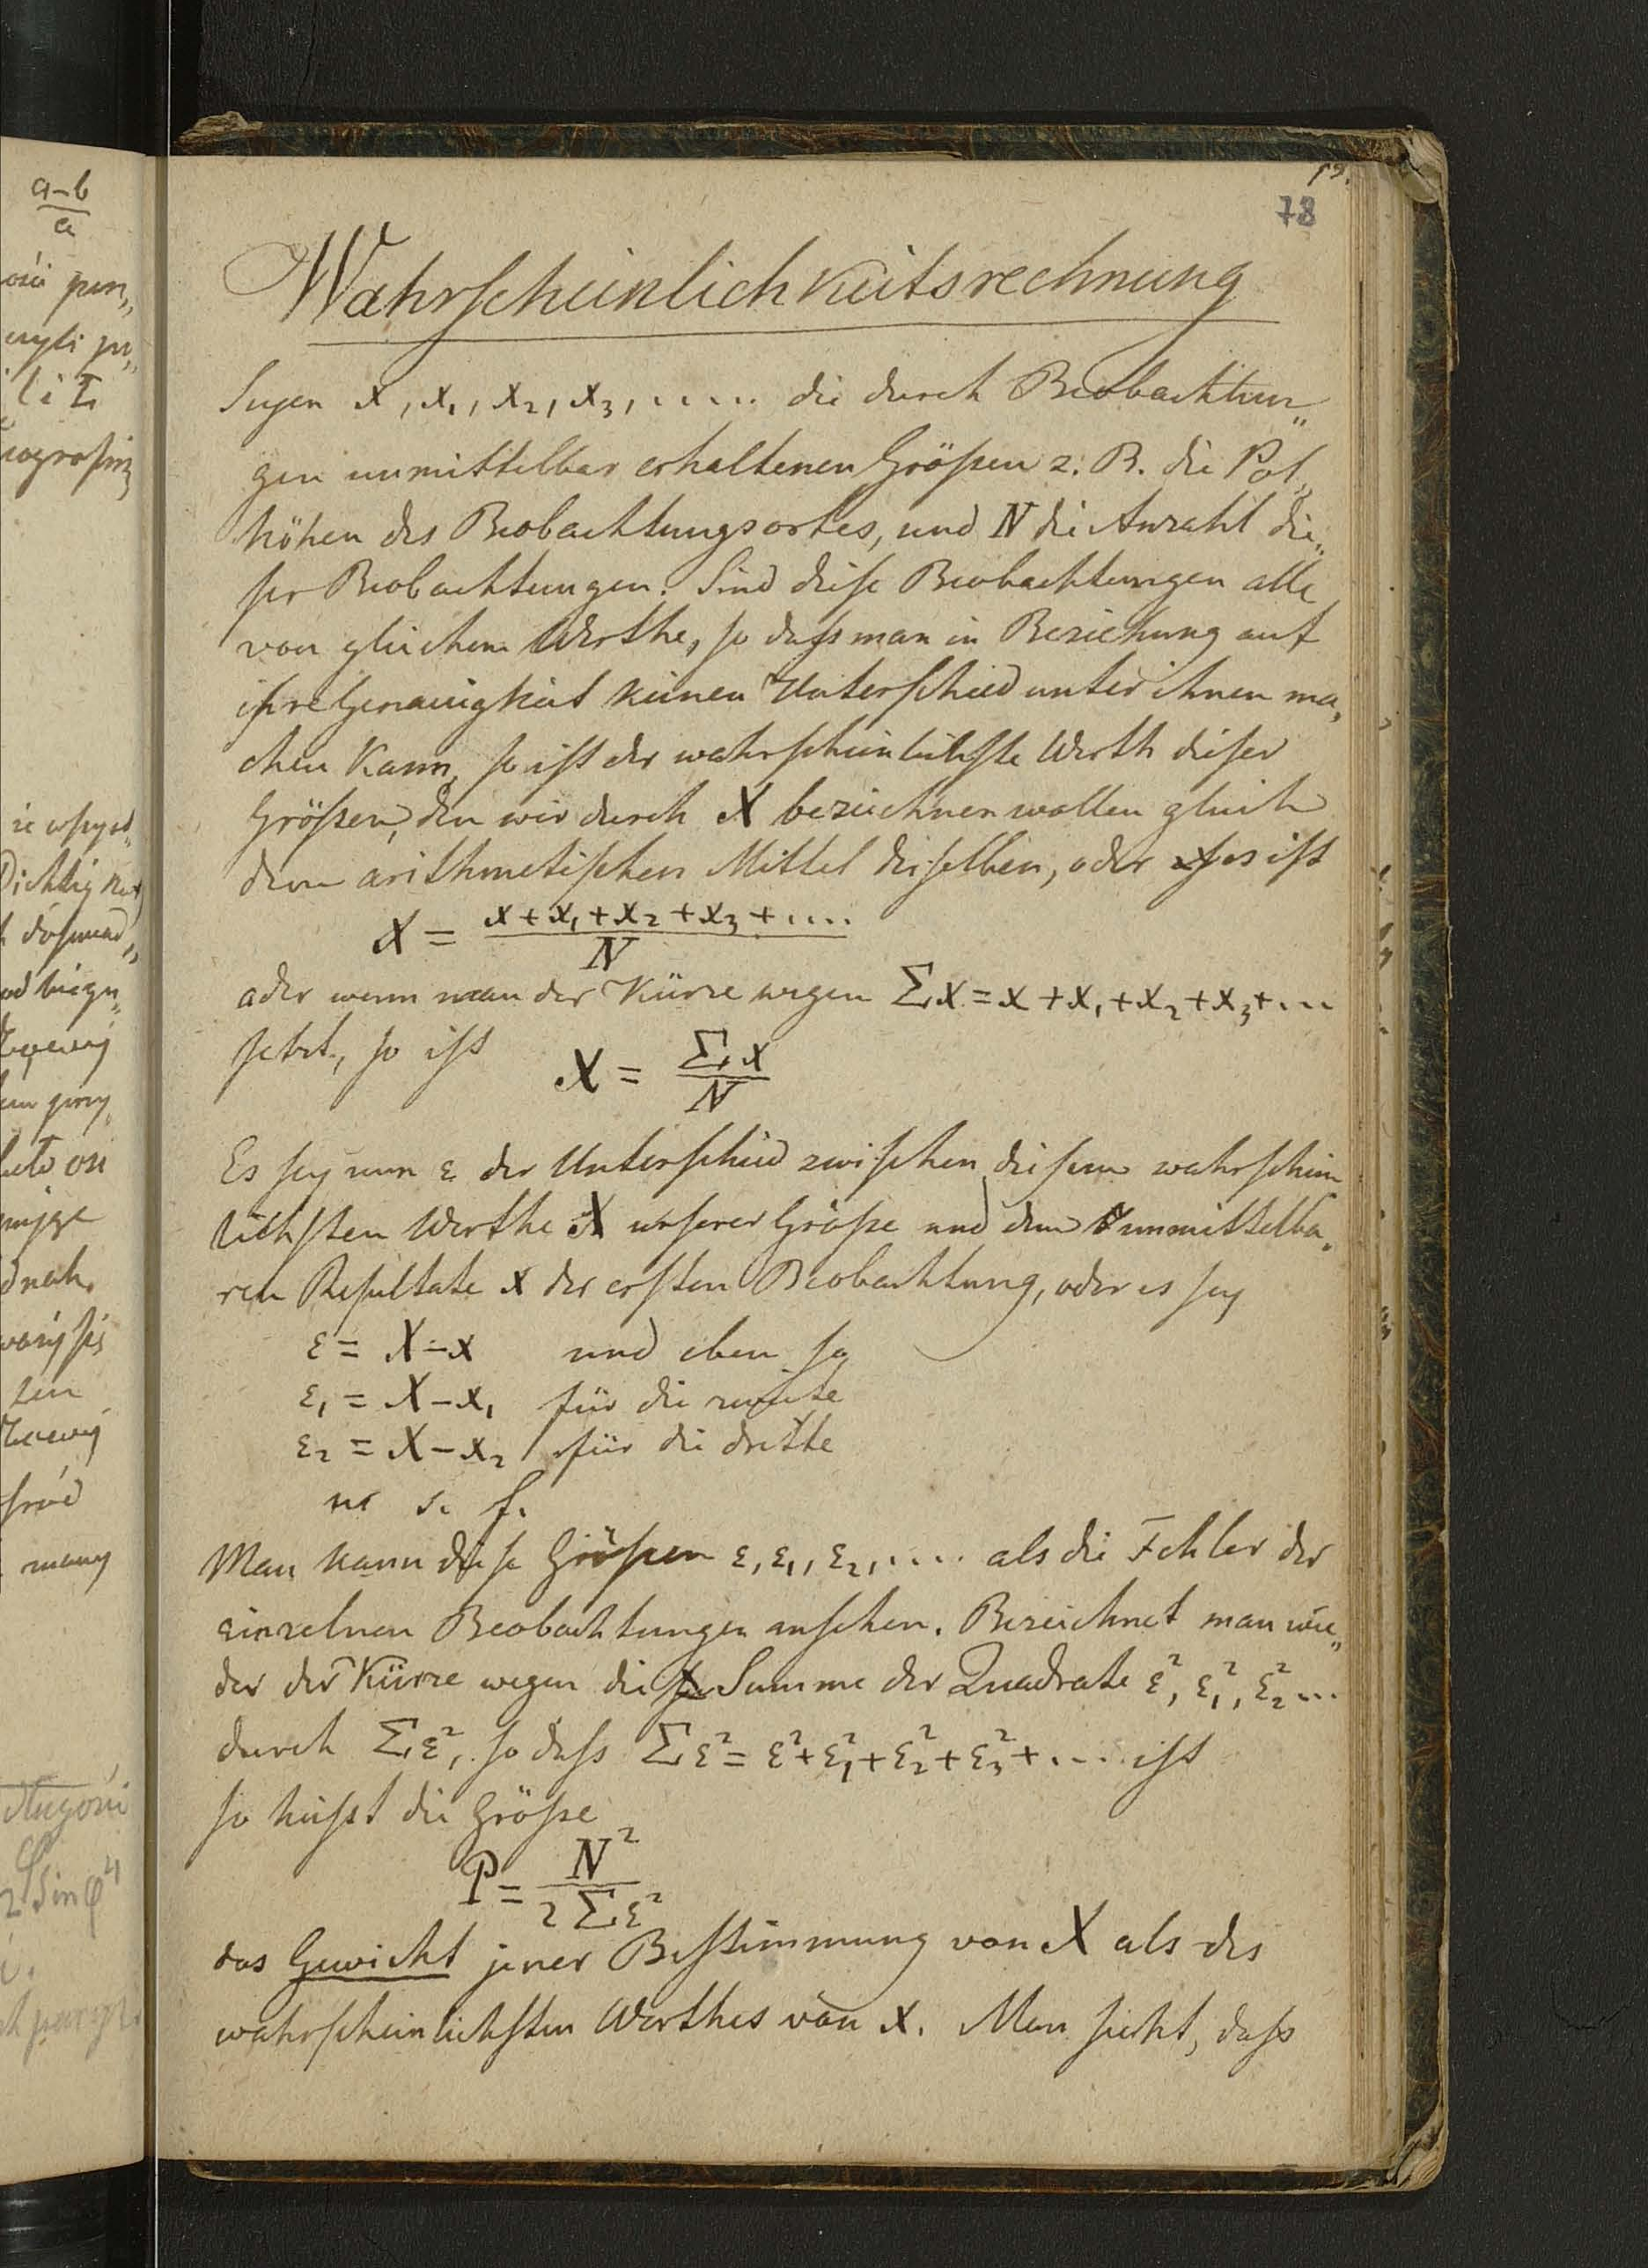 a-b
a
19.
78
Wahrscheinlichkeitsrechnung
Seyen x, x₁, x₂, x₃, ..... die durch Beobachtun„
gen unmittelbar erhaltenen Größen z. B. die Pol„
höhen des Beobachtungsortes, und N die Anzahl die„
ser Beobachtungen. Sind diese Beobachtungen alle
von gleichem Werthe, so dass man in Beziehung auf
ihre Genauigkeit keinen Unterschied unter ihnen ma„
chen kann, so ist der wahrscheinlichste Werth dieser
Größen, den wir durch X bezeichnen wollen gleich
dem arithmetischen Mittel derselben, oder es ist
X = x + x₁ + x₂ + x₃ + ....
N
oder wenn man der Kürze wegen Σx = x + x₁ + x₂ + x₃ + ...
setzt, so ist X = Σx
N
Es sey nun ε der Unterschied zwischen diesem wahrschein
lichsten Werthe X unserer Größe und dem unmittelba„
ren Resultate x der ersten Beobachtung, oder es sey
ε = X - x und eben so
ε₁ = X - x₁ für die zweite
ε₂ = X - x₂ für die dritte
u. s. f.
Man kann diese Größen ε, ε₁, ε₂, .... als die Fehler der
einzelnen Beobachtungen ansehen. Bezeichnet man wie„
der der Kürze wegen die Summe der Quadrate ε², ε₁², ε₂² ...
durch Σε², so dass Σε² = ε² + ε₁² + ε₂² + ε₃² + .... ist
so heisst die Größe
P = N²
2 Σε²
das Gewicht jener Bestimmung von X als des
wahrscheinlichsten Werthes von x. Man sieht, dass